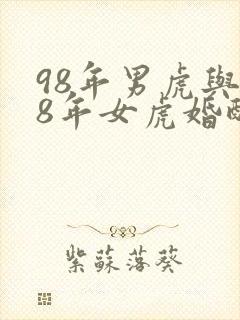 98年男虎與
8年女虎婚配
紫蘇落葵